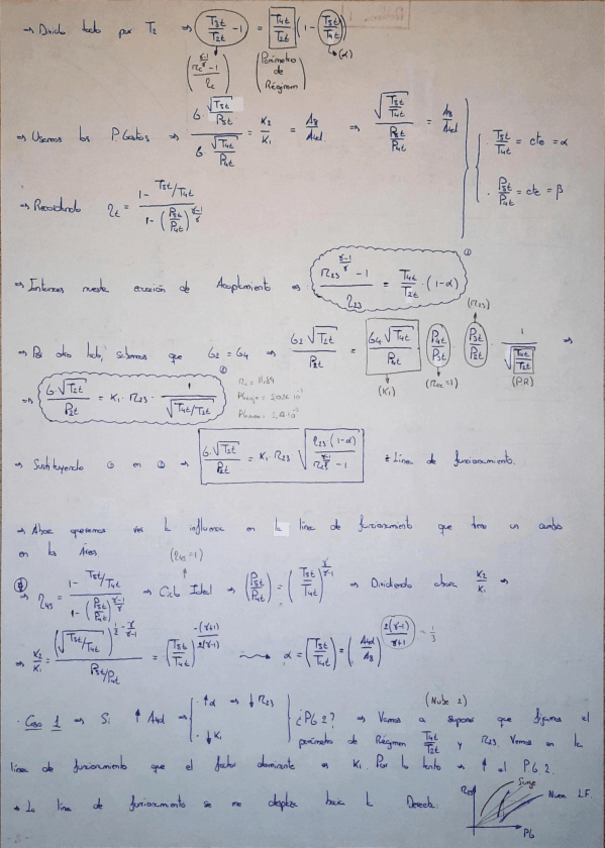 ⇒ Divido todo por T₂ ⇒ T3t/T2t - 1 = T4t/T2t (1 - T5t/T4t) → (α)
(π_c^((γ-1)/γ) - 1 / η_c) (Parámetro de Régimen)
⇒ Usamos los P. Gastos ⇒ (G·√T5t/P5t) / (G·√T4t/P4t) = K2/K1 = A8/A4d ⇒ √(T5t/T4t) / (P5t/P4t) = A8/A4d
· T5t/T4t = cte = α
· P5t/P4t = cte = β
⇒ Recordando η_t = (1 - T5t/T4t) / (1 - (P5t/P4t)^((γ-1)/γ))
⇒ Entonces nuestra ecuación de Acoplamiento ⇒ (π23^((γ-1)/γ) - 1) / η23 = T4t/T2t · (1-α) ①
(π23)
⇒ Por otro lado, sabemos que G2 = G4 ⇒ G2 √T2t / P2t = G4 √T4t / P4t · P4t/P3t · P3t/P2t · 1/√(T4t/T2t) ⇒
(K1) (πcc=1) (PR)
⇒ G √T2t / P2t = K1 · π23 · 1/√(T4t/T2t) ②
⇒ Sustituyendo ① en ② ⇒ G·√T2t / P2t = K1 π23 √(η23·(1-α) / (π23^((γ-1)/γ) - 1)) * Línea de funcionamiento.
⇒ Ahora queremos ver la influencia en la línea de funcionamiento que tiene un cambio
en las Áreas.
(η45=1)
⇒ η45 = (1 - T5t/T4t) / (1 - (P5t/P4t)^((γ-1)/γ)) ⇒ Ciclo Ideal ⇒ (P5t/P4t) = (T5t/T4t)^(γ/(γ-1)) ⇒ Dividiendo ahora K2/K1 ⇒
⇒ K2/K1 = (√T5t/T4t)^(1/2 - γ/(γ-1)) / P5t/P4t = (T5t/T4t)^(-(γ+1)/2(γ-1)) ⇝ α = (T5t/T4t) = (A4d/A8)^(2(γ-1)/(γ+1)) ~ 1/3
(Nube 2)
· Caso 1 ⇒ Si ↑ A4d ⇒ · ↑α ⇒ ↓ π23 · ↓ K1 ¿PG2? ⇒ Vamos a suponer que fijamos el
parámetro de Régimen T4t/T2t y π23. Vemos en la
línea de funcionamiento que el factor dominante es K1. Por lo tanto ⇒ ↑ el P.G 2.
* La línea de funcionamiento se me desplaza hacia la Derecha.
Surge
Nueva L.F.
PG